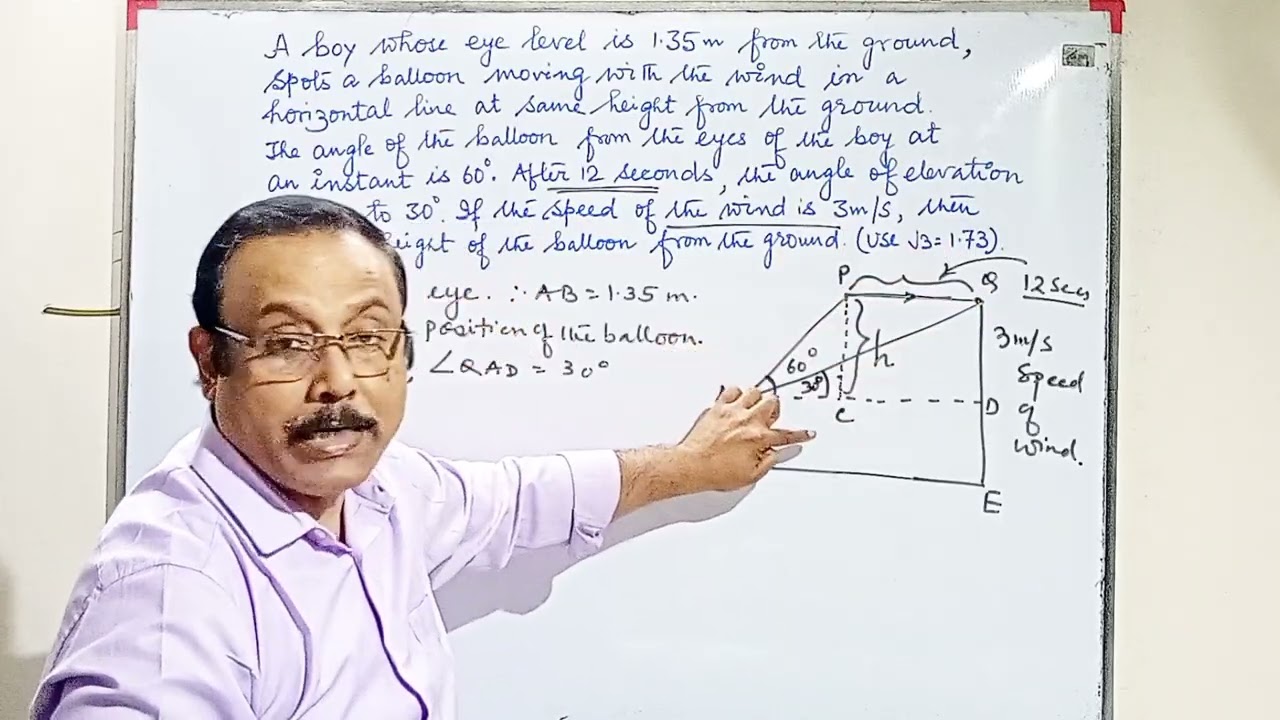 A boy whose eye level is 1.35m from the ground,
spots a balloon moving with the wind in a
horizontal line at same height from the ground.
The angle of the balloon from the eyes of the boy at
an instant is 60°. After 12 seconds, the angle of elevation
to 30°. If the speed of the wind is 3m/s, then
height of the balloon from the ground. (use √3=1.73).
eye. ∴ AB = 1.35 m.
position of the balloon.
∠QAD = 30°
P
Q
12 secs
60°
30°
h
3m/s
speed
of
wind.
C
D
E